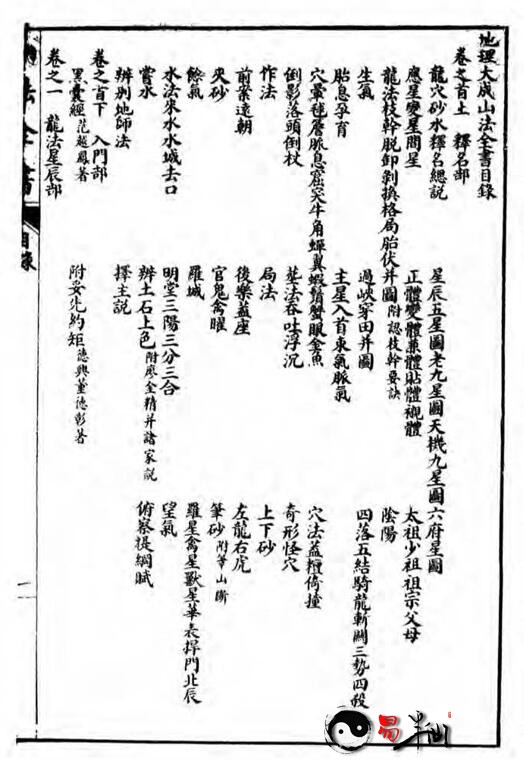 地理大成山法全書目錄
卷之首上 釋名部
龍穴砂水釋名總說 星辰五星圖老九星圖天機九星圖 六府星圖
應星變星間星 正體變體兼體貼體襯體 太祖少祖祖宗父母
龍法枝幹脫卸剝換格局胎伏并圖附認枝幹要訣 陰陽
生氣 過峽穿田并圖 四落五結騎龍斬關三勢四殺
胎息孕育 主星入首束氣脈氣
穴暈毬簷脈息窟突牛角蟬翼蝦鬚蟹眼金魚 穴法蓋粘倚撞
倒影落頭倒杖 葬法吞吐浮沉 奇形怪穴
作法 局法 上下砂
前案遠朝 後樂蓋座 左龍右虎
夾砂 官鬼禽曜 筆砂附等山斷
餘氣 羅城 羅星禽星獸星華表捍門北辰
水法來水水城去口 明堂三陽三分三合 望氣
嘗水 辨土石上色附廖金精并諸家說 俯察提綱賦
辨別地師法 擇主說
卷之首下 入門部
黑囊經范越鳳著 附妥先約矩德興董德彰著
卷之一 龍法星辰部
法全書
目錄
易